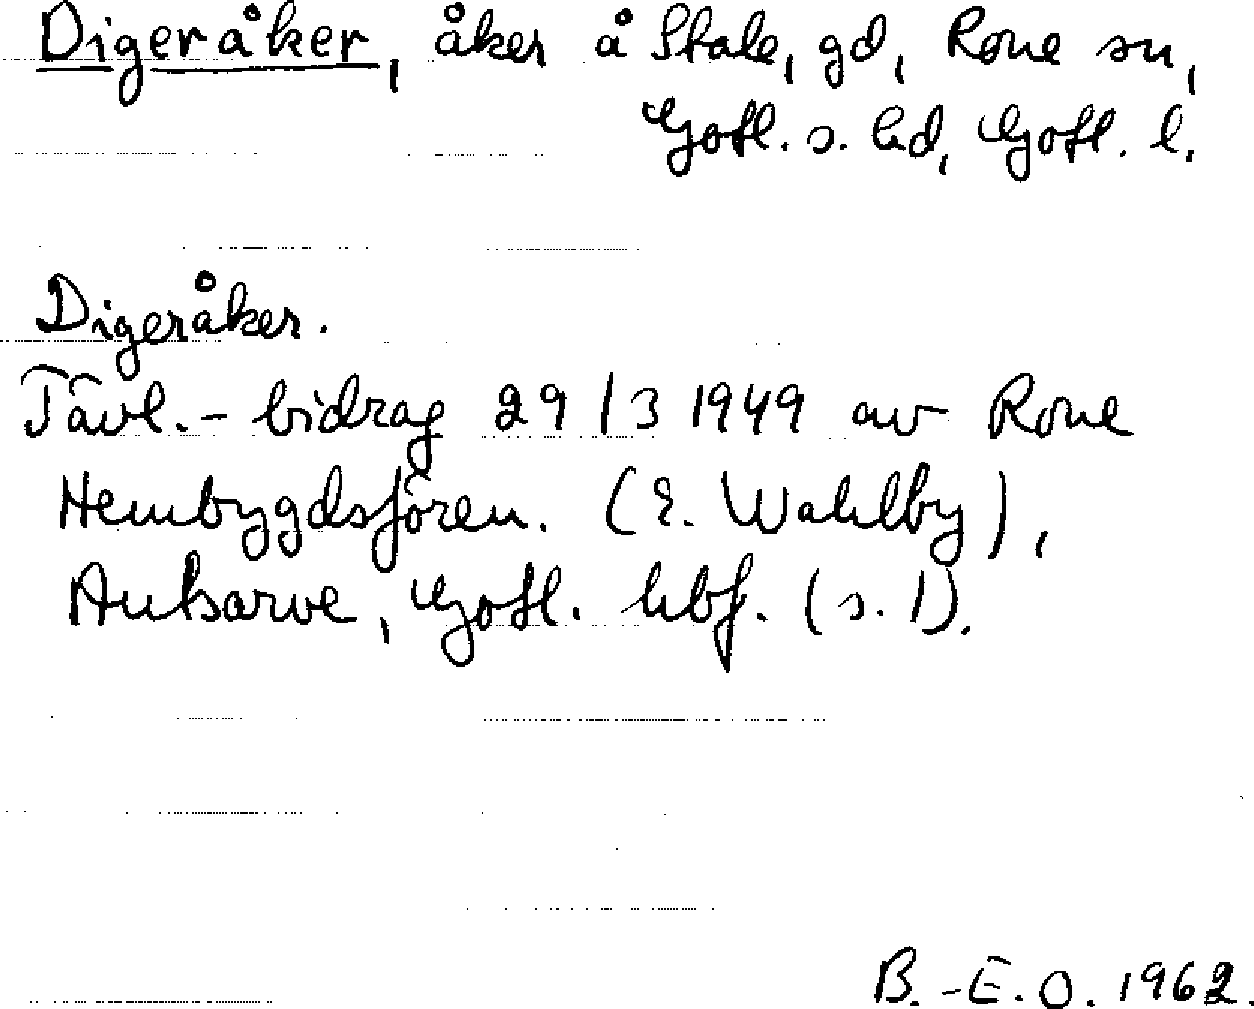 Digeråker, åker å Stale, gd, Rone sn,
Gotl. s. hd, Gotl. l.
Digeråker.
Tävl.-bidrag 29/3 1949 av Rone
Hembygdsfören. (E. Wahlby),
Autsarve, Gotl. hbf. (s. 1).
B.-E.O. 1962.